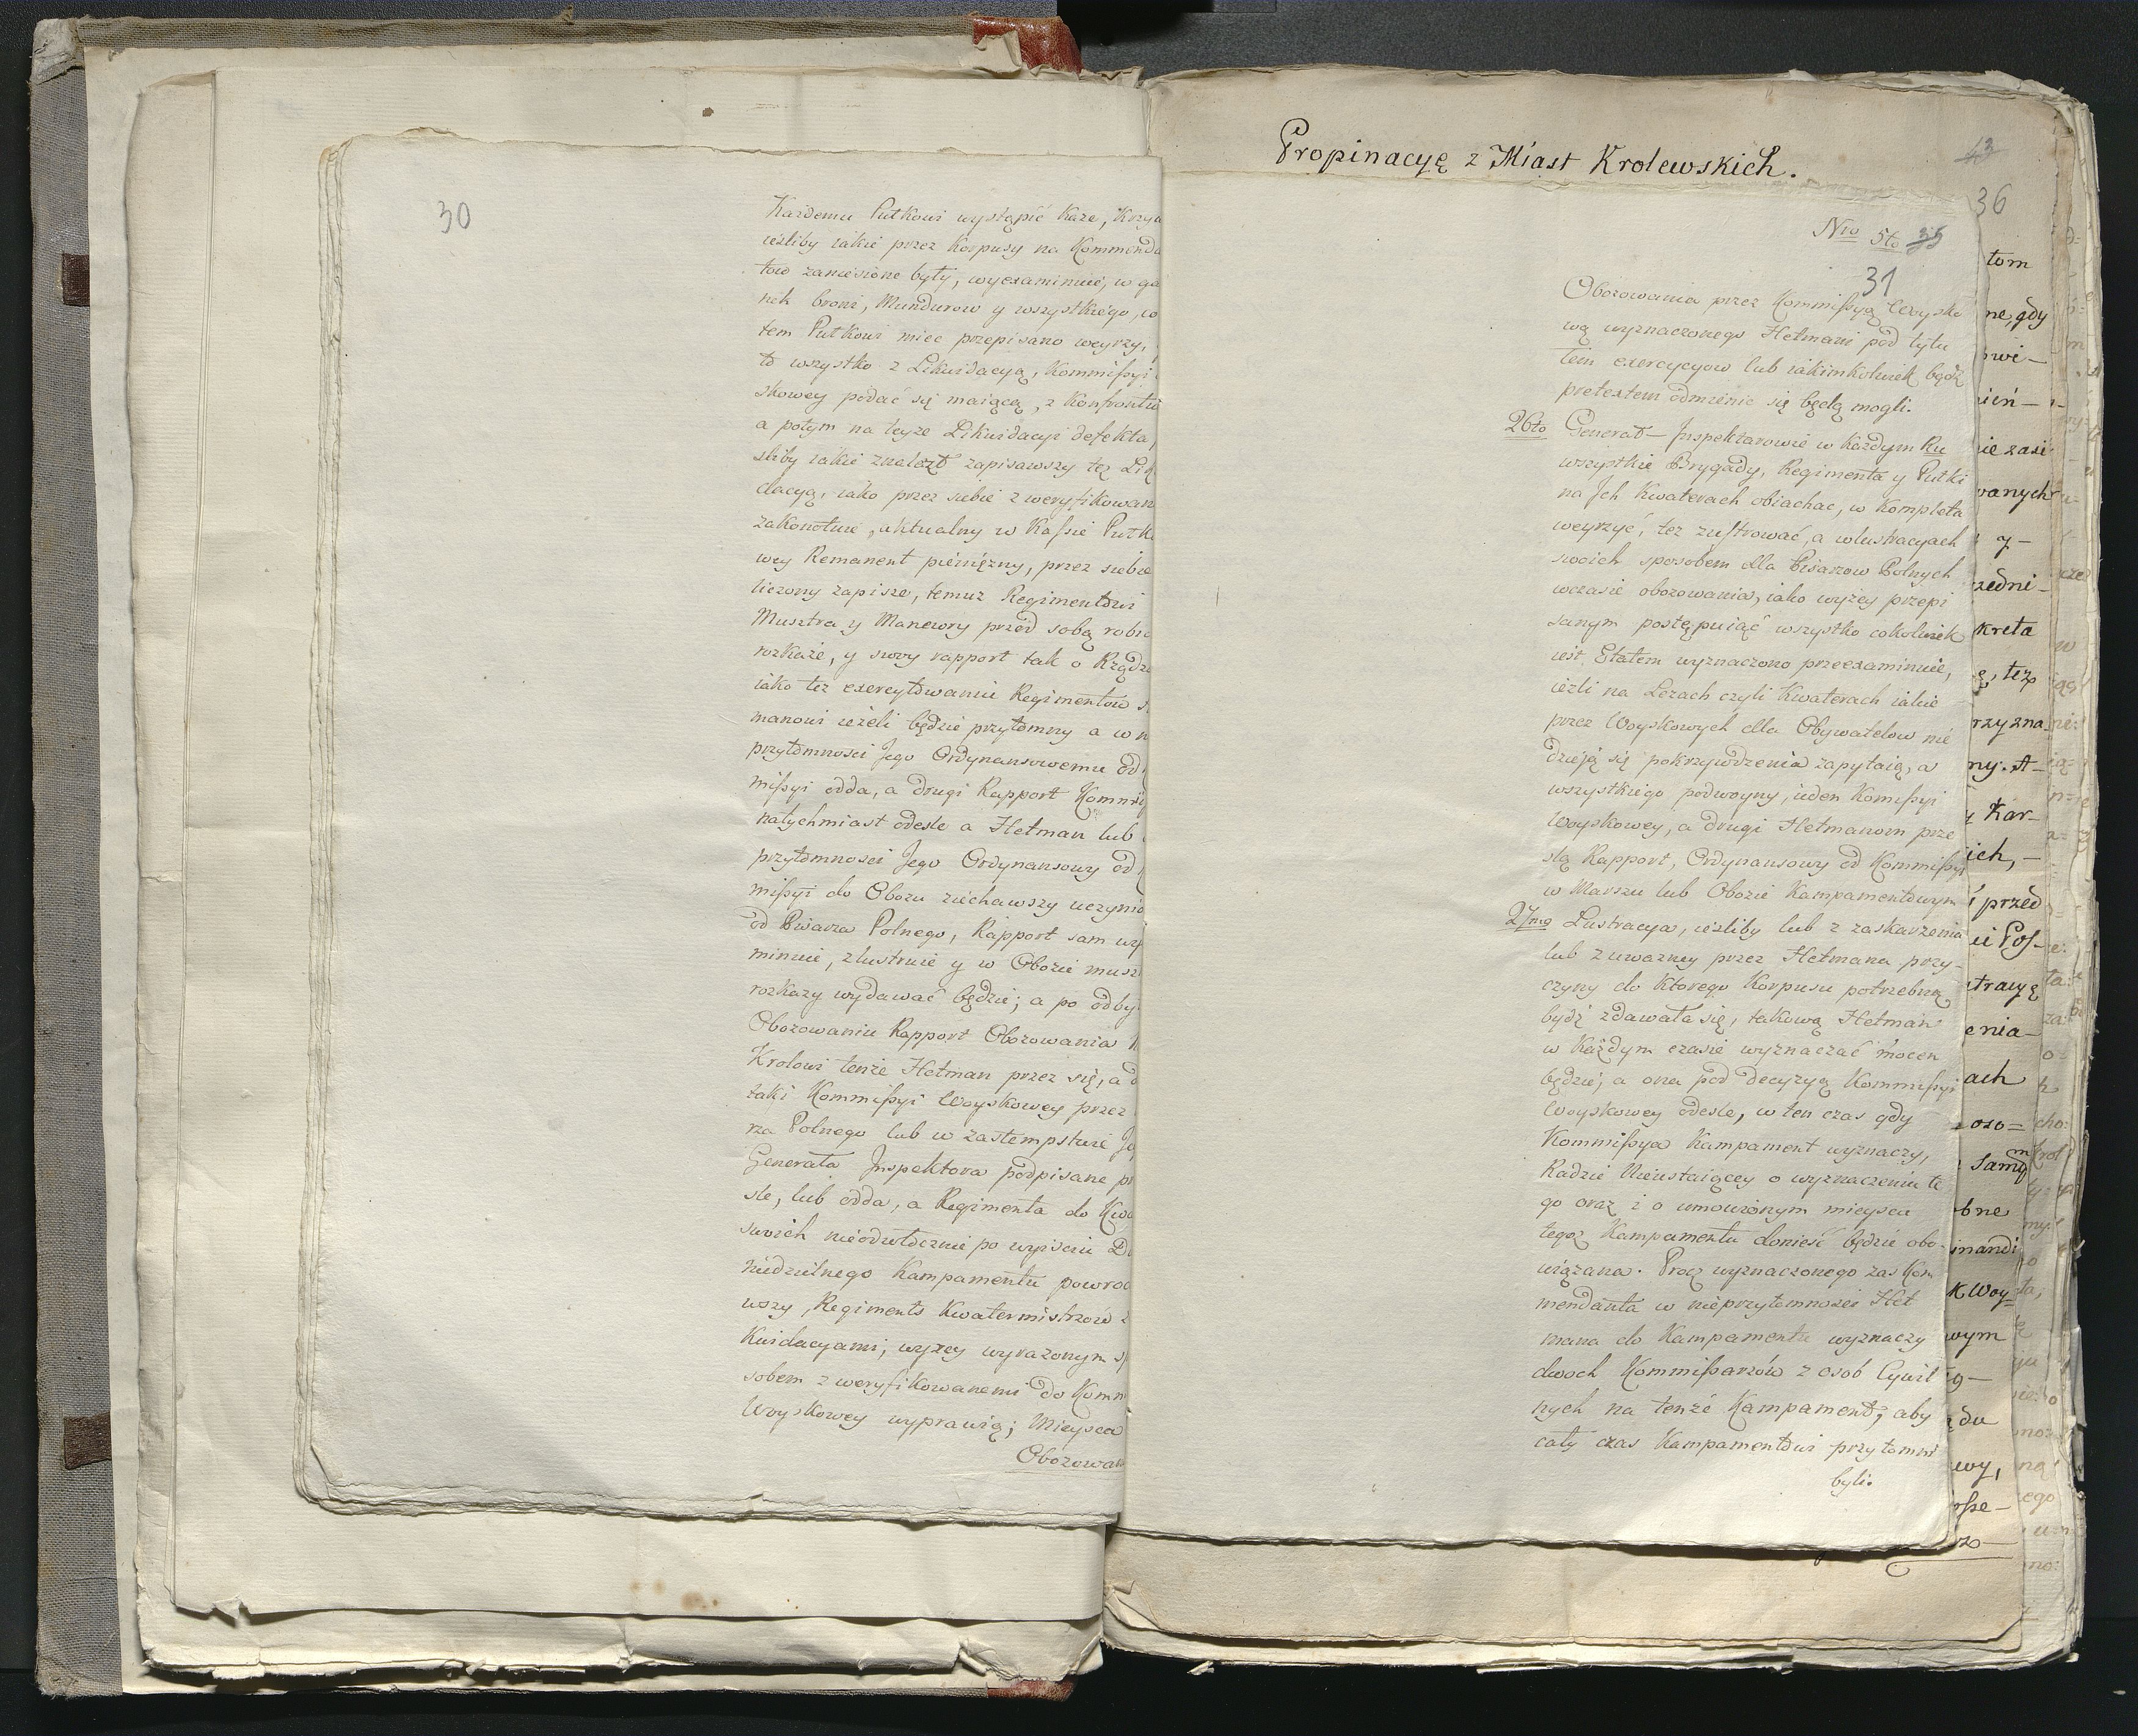 30
Każdemu Pułkowi wystąpić każe, Krzy
ieżliby iakie przez Korpusy na Kommend
tow zaniesione były, wyexaminuie, w ga
nek broni, Mundurow y wszystkiego, co
tem Pułkowi miec przepisano weyrzy,
to wszystko z Likwidacyą, Kommissyi
skowey podać się maiącą, z Konfrontu
a potym na teyże Likwidacyi defekta,
sliby iakie znalazł zapisawszy tęż Lik
dacyą, iako przez siebie zweryfikowan
zakonotuie, aktualny w Kassie Pułk
wey Remanent pieniężny, przez siebie
liczony zapisze, temuż Regimentowi
Musztrą y Manewry przed sobą robić
rozkaże, y swoy rapport tak o Rządzi
iako też exercytowaniu Regimentow
manowi ieżeli będzie przytomny a w n
przytomnosci Jego Ordynansowemu od
missyi odda, a drugi Rapport Kommi
natychmiast odesle a Hetman lub
przytomnosci Jego Ordynansowy od
missyi do Obozu ziechawszy uczynio
od Pisarza Polnego, Rapport sam wy
minuie, zlustruie y w Obozie musz
rozkazy wydawać będzie; a po odby
Obozowaniu Rapport Obozowania
Krolowi tenże Hetman przez się, a d
taki Kommissyi Woyskowey przez
rza Polnego lub w zastempstwie Je
Generała Jnspektora podpisane p
sle, lub odda, a Regimenta do Kwa
swoich nieodwłocznie po wyisciu D
niedzielnego Kampamentu powroc
wszy, Regiments Kwatermistrzow z
Kwidacyami, wyżey wyrażonym sp
sobem zweryfikowanemi do Komm
Woyskowey wyprawią; Mieysca
Obozowa
Propinacyę z Miast Krolewskich.
43
36
Nro 5to 35
31
Obozowania przez Kommissyą Woysko
wą wyznaczonego Hetmani pod tytu
łem exercycyow lub iakimkolwiek bądź
pretextem odmienic się będą mogli.
26to Generał-Jnspektorowie w każdym Ru
wszystkie Brygady, Regimenta y Pułki
na Jch Kwaterach obiachac, w kompleta
weyrzyć, też zustrować, a w lustracyach
swoich sposobem dla Pisarzow Polnych
w czasie obozowania, iako wyżey przepi
sanym postępuiąć wszystko cokolwiek
iest Etatem wyznaczono przeexaminuie,
ieżli na Leżach czyli Kwaterach iakie
przez Woyskowych dla Obywatelow nie
dzieją się pokrzywdzenia zapytaią, a
wszystkiego podwoyny, ieden Komissyi
Woyskowey, a drugi Hetmanom prze
slą Rapport, Ordynansowy od Kommissyi
w Marszu lub Obozie Kampamentowym
27mo Lustracya, ieżliby lub z zaskarżenia
lub z uważney przez Hetmana przy-
czyny do ktorego Korpusu potrzebną
bydź zdawała się, takową Hetman
w każdym czasie wyznaczać mocen
będzie, a ona pod decyzyą Kommissyi
Woyskowey odesle, w ten czas gdy
Kommissya Kampament wyznaczy,
Radzie Nieustaiącey o wyznaczeniu te
go oraz i o umowionym mieyscu
tegoż Kampamentu doniesć będzie obo-
wiązana. Procz wyznaczonego zas Kom
mendanta w nieprzytomnosci Het
mana do Kampamentu wyznaczy
dwoch Kommissarzow z osob Cywil
nych na tenże Kampament; aby
cały czas Kampamentowi przytomni
byli.
tom
ne, gdy
wi-
ień-
ie zasi
wanych
y-
zedni-
kreta
ę, też
rzyzna
ny. A-
y Kar-
ich, -
i przed
ei Pos-
stracyę
enia-
ach
ozo=
samą
bne
inandi
k Woy=
wym
g-
du
wy,
sse-